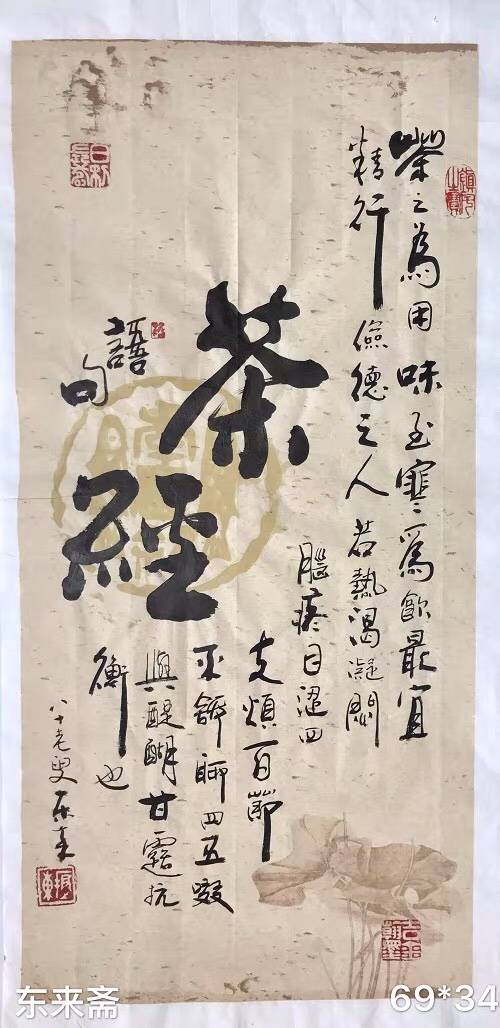 茶之為用味至寒為飲最宜
精行儉德之人若熱渴凝悶
腦疼目澀四
支煩百節
不舒聊四五啜
與醍醐甘露抗
衡也
茶經
語句
八十老叟东来
东来斋
69*34